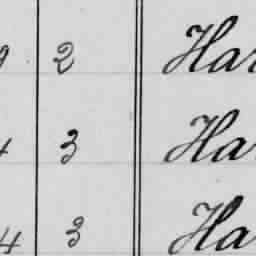 9 2 Har
4 3 Har
4 3 Ha